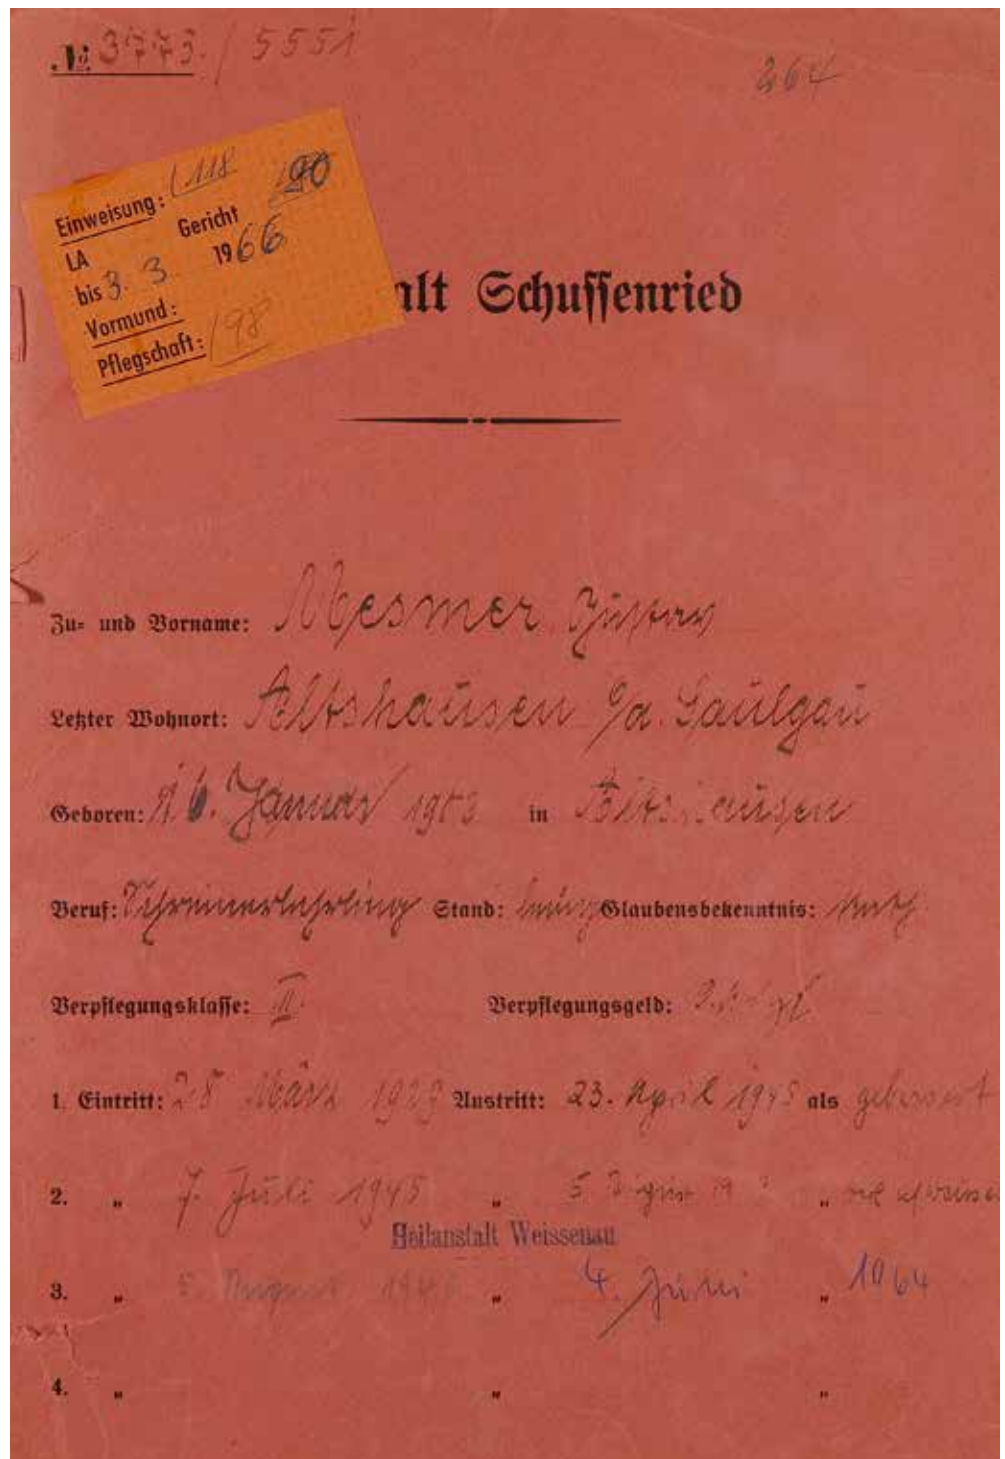 № 3773. / 5551
264
Einweisung: 118
Gericht 90
LA
bis 3. 3. 1966
Vormund:
Pflegschaft: 198
alt Schussenried
Zu- und Vorname: Mesmer Gustav
Letzter Wohnort: Altshausen O/a. Saulgau
Geboren: 16. Januar 1903 in Altshausen
Beruf: Schreinerlehrling Stand: ledig Glaubensbekenntnis: kath
Verpflegungsklasse: III. Verpflegungsgeld:
1. Eintritt: 28 März 1929 Austritt: 23. April 1945 als gebessert
2. „ 7. Juli 1945 „ 5 August „
Heilanstalt Weissenau
3. „ 5. August „ 4. Juni „ 1964
4. „ „ „